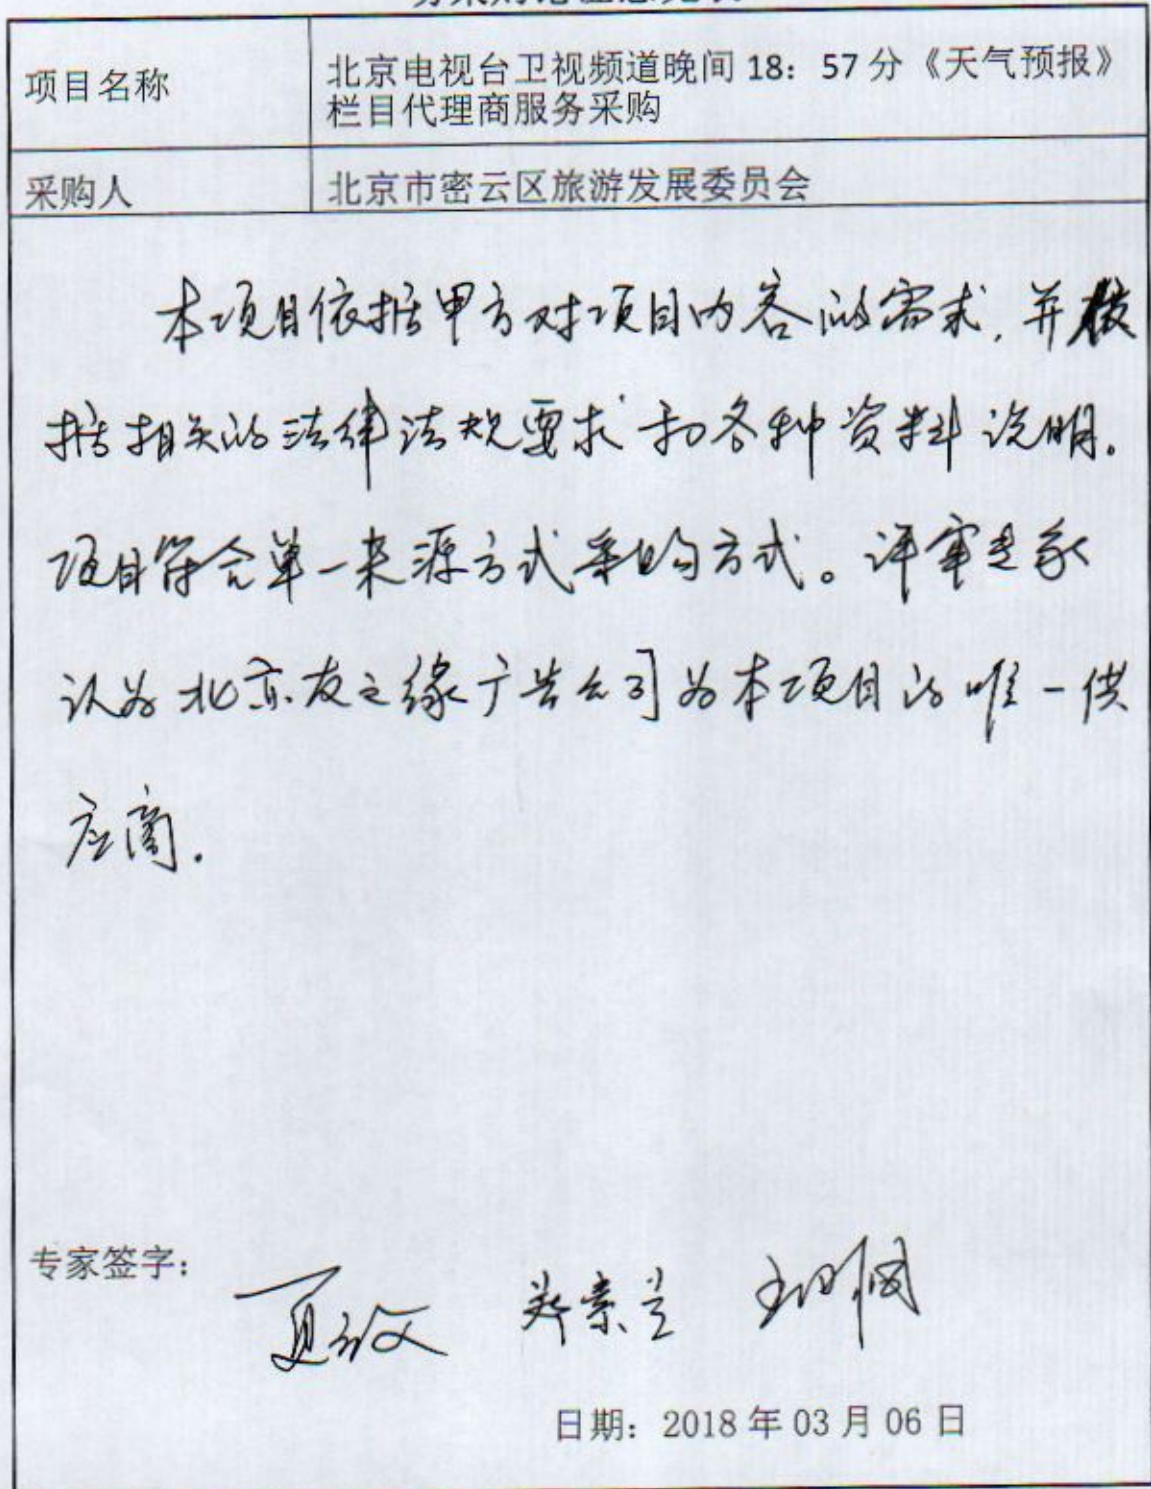 项目名称
北京电视台卫视频道晚间18：57分《天气预报》
栏目代理商服务采购
采购人
北京市密云区旅游发展委员会
本项目依据甲方对项目内容的需求,并根
据相关的法律法规要求和各种资料说明。
项目符合单一来源方式采购方式。评审专家
认为北京友之缘广告公司为本项目的唯一供
应商.
专家签字：
郑素兰
日期：2018年03月06日